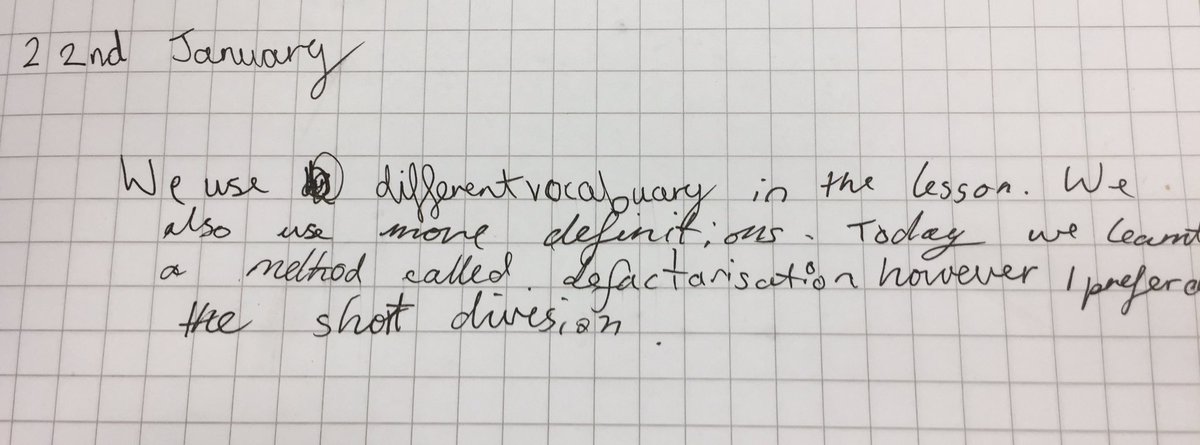 22nd January
We use different vocabuary in the lesson. We
also use more definitions. Today we learnt
a method called defactarisation however I prefer
the short divesion.